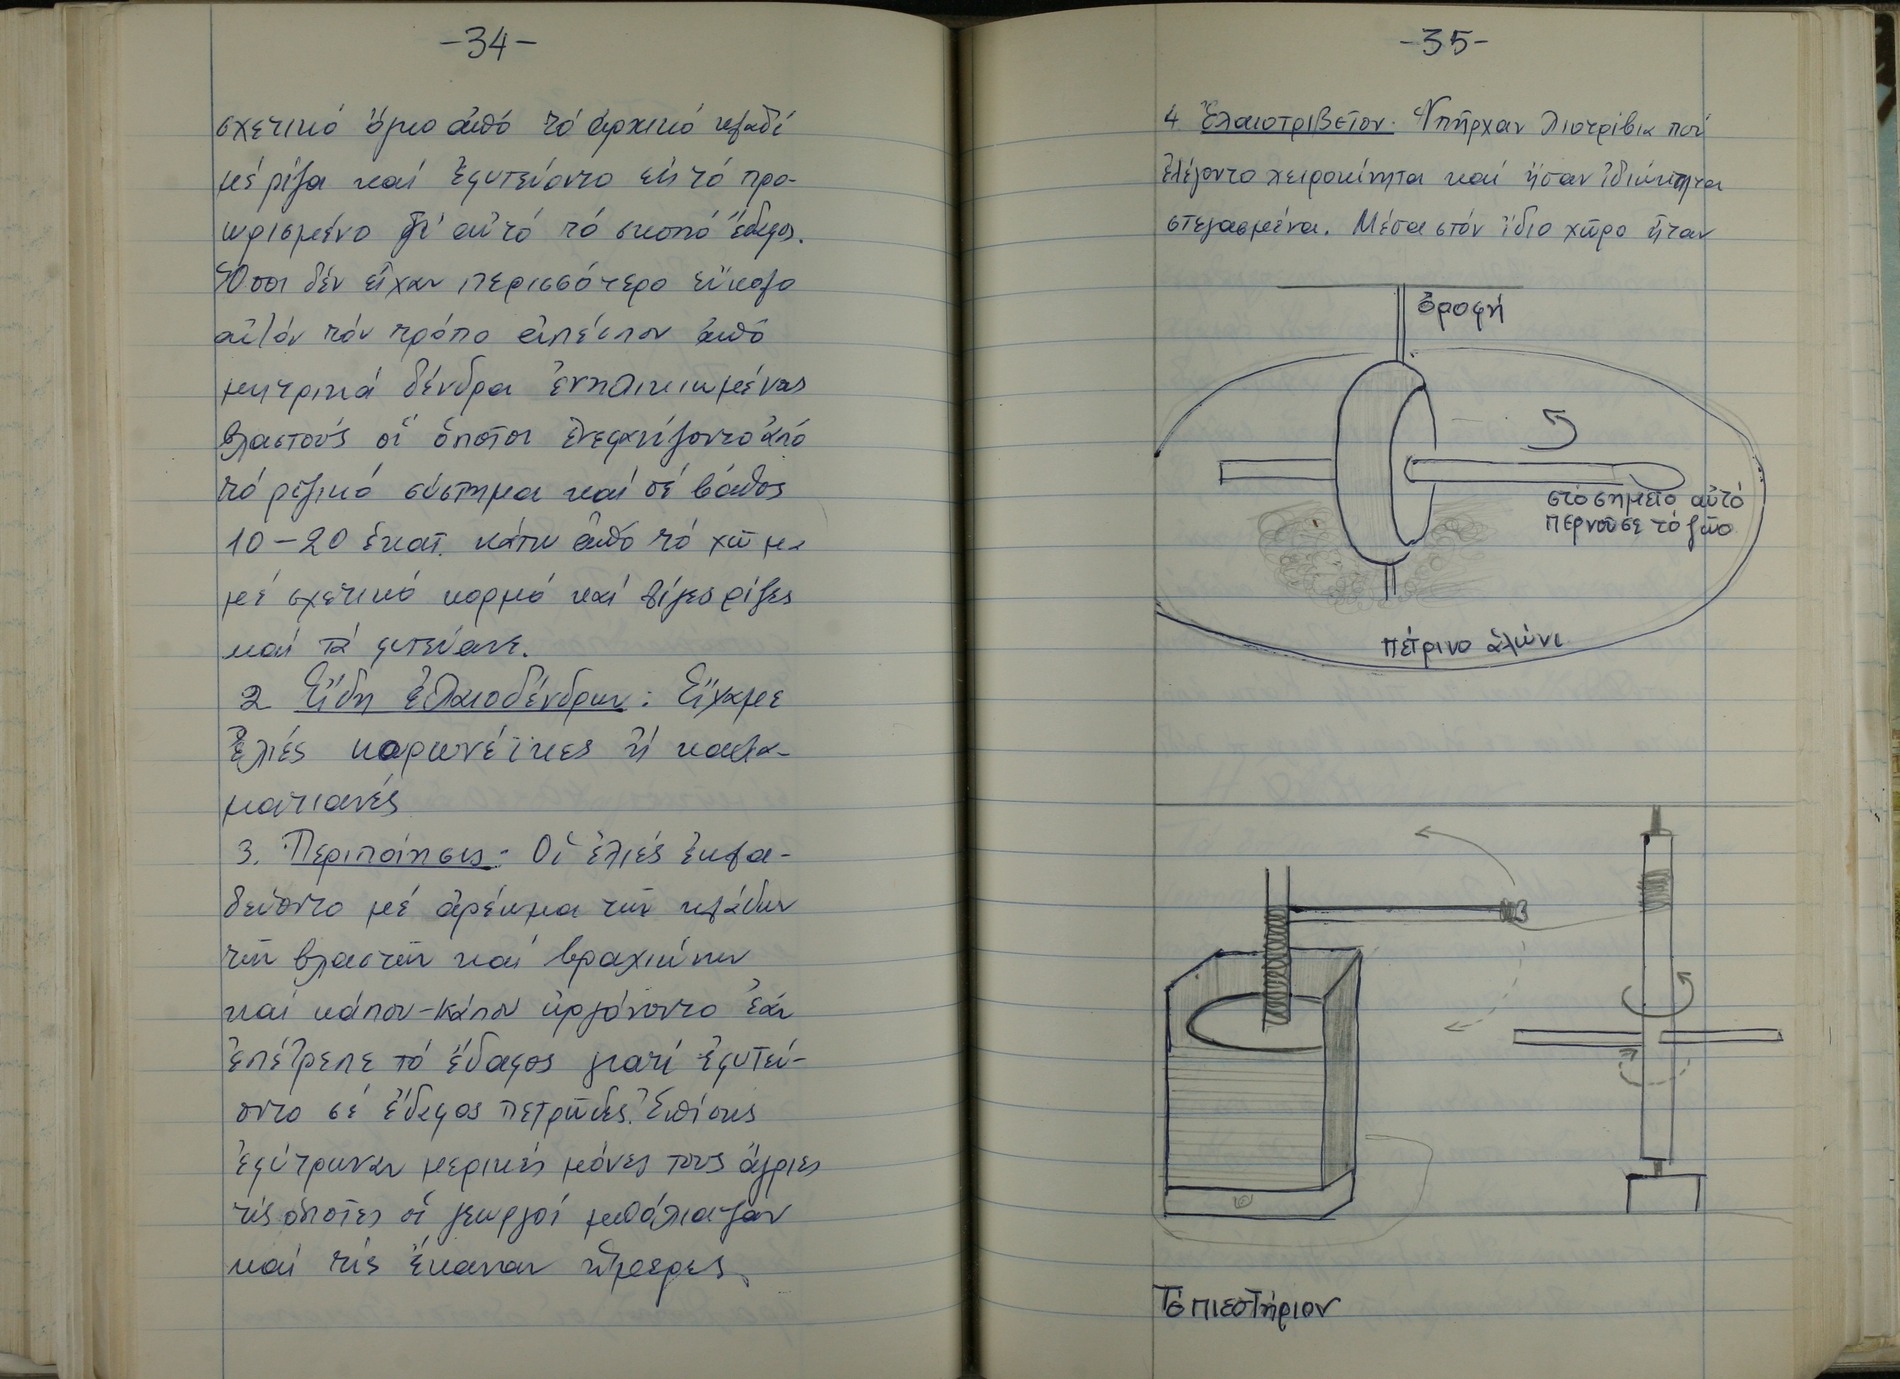 -34-
σχετικό ὅμιο ἀπό τό ἀρχικό κλαδί
μέ ρίζα καί ἐφυτεύοντο εἰς τό προ-
ωρισμένο γι' αὐτό τό σκοπό ἔδαφος.
Ὅσοι δέν εἶχαν περισσότερο εὔκολο
αὐτόν τόν τρόπο ἀπέσπον ἀπό
μητρικά δένδρα ἐνηλικιωμένα
βλαστούς οἵ ὁποῖοι ἐνεφανίζοντο ἀπό
τό ριζικό σύστημα καί σέ βάθος
10-20 ἑκατ. κάτω ἀπό τό χῶμα
μέ σχετικό κορμό καί λίγες ρίζες
καί τά φυτεύανε.
2 Εἴδη ἐλαιοδένδρων: Εἴχαμε
ἐλιές κορωνέϊκες ἤ καλα-
ματιανές
3. Περιποίησις: Οἱ ἐλιές ἐκλα-
δεύοντο μέ ἀραίωμα τῶν κλάδων
τῶν βλαστῶν καί βραχιόνων
καί κάπου-κάπου ὠργώνοντο ἐάν
ἐπέτρεπε τό ἔδαφος γιατί ἐφυτεύ-
οντο σέ ἔδαφος πετρῶδες. Ἐπίσης
ἐφύτρωναν μερικές μόνες τους ἄγριες
τίς ὁποῖες οἵ γεωργοί μπόλιαζαν
καί τίς ἔκαναν ἥμερες.
-35-
4 Ἐλαιοτριβεῖον. Ὑπῆρχαν λιοτρίβια πού
ἐλέγοντο χειροκίνητα καί ἦσαν ἰδιόκτητα
στεγασμένα. Μέσα στόν ἴδιο χῶρο ἦταν
ὀροφή
στό σημεῖο αὐτό
περνοῦσε τό ζῶο
πέτρινο ἁλώνι
Τό πιεστήριον